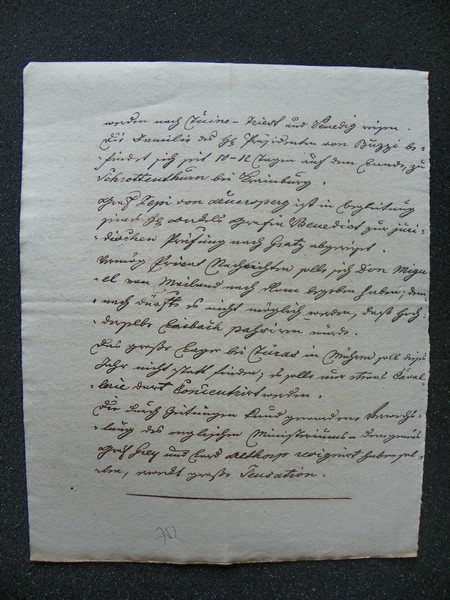 werden nach Fiume – Triest und Venedig reisen.
Die Familie des H. Präsidenten von Buzzi be-
findet sich seit 10–12 Tagen auf dem Lande, zu
Schrottenthurn bei Krainburg.
Graf Pepi von Auersperg ist in Begleitung
seines H. Onkels Grafen Benedict zur juri-
dischen Prüfung nach Gratz abgereist.
Vermög Privat Nachrichten solle sich Don Migu-
el von Mailand nach Rom begeben haben, dem-
nach dürfte es nicht möglich werden, daß Hoch-
derselbe Laibach passiren würde.
Das große Lager bei Turas in Mähren soll dieses
Jahr nicht statt finden, es solle nur etwas Caval-
lerie dort Concentrirt werden.
Die durch Zeitungen kund gewordene Verwechs-
lung des englischen Ministeriums – demgemäß
Graf Grey und Lord Althorp resignirt haben sol-
len, macht große Sensation.